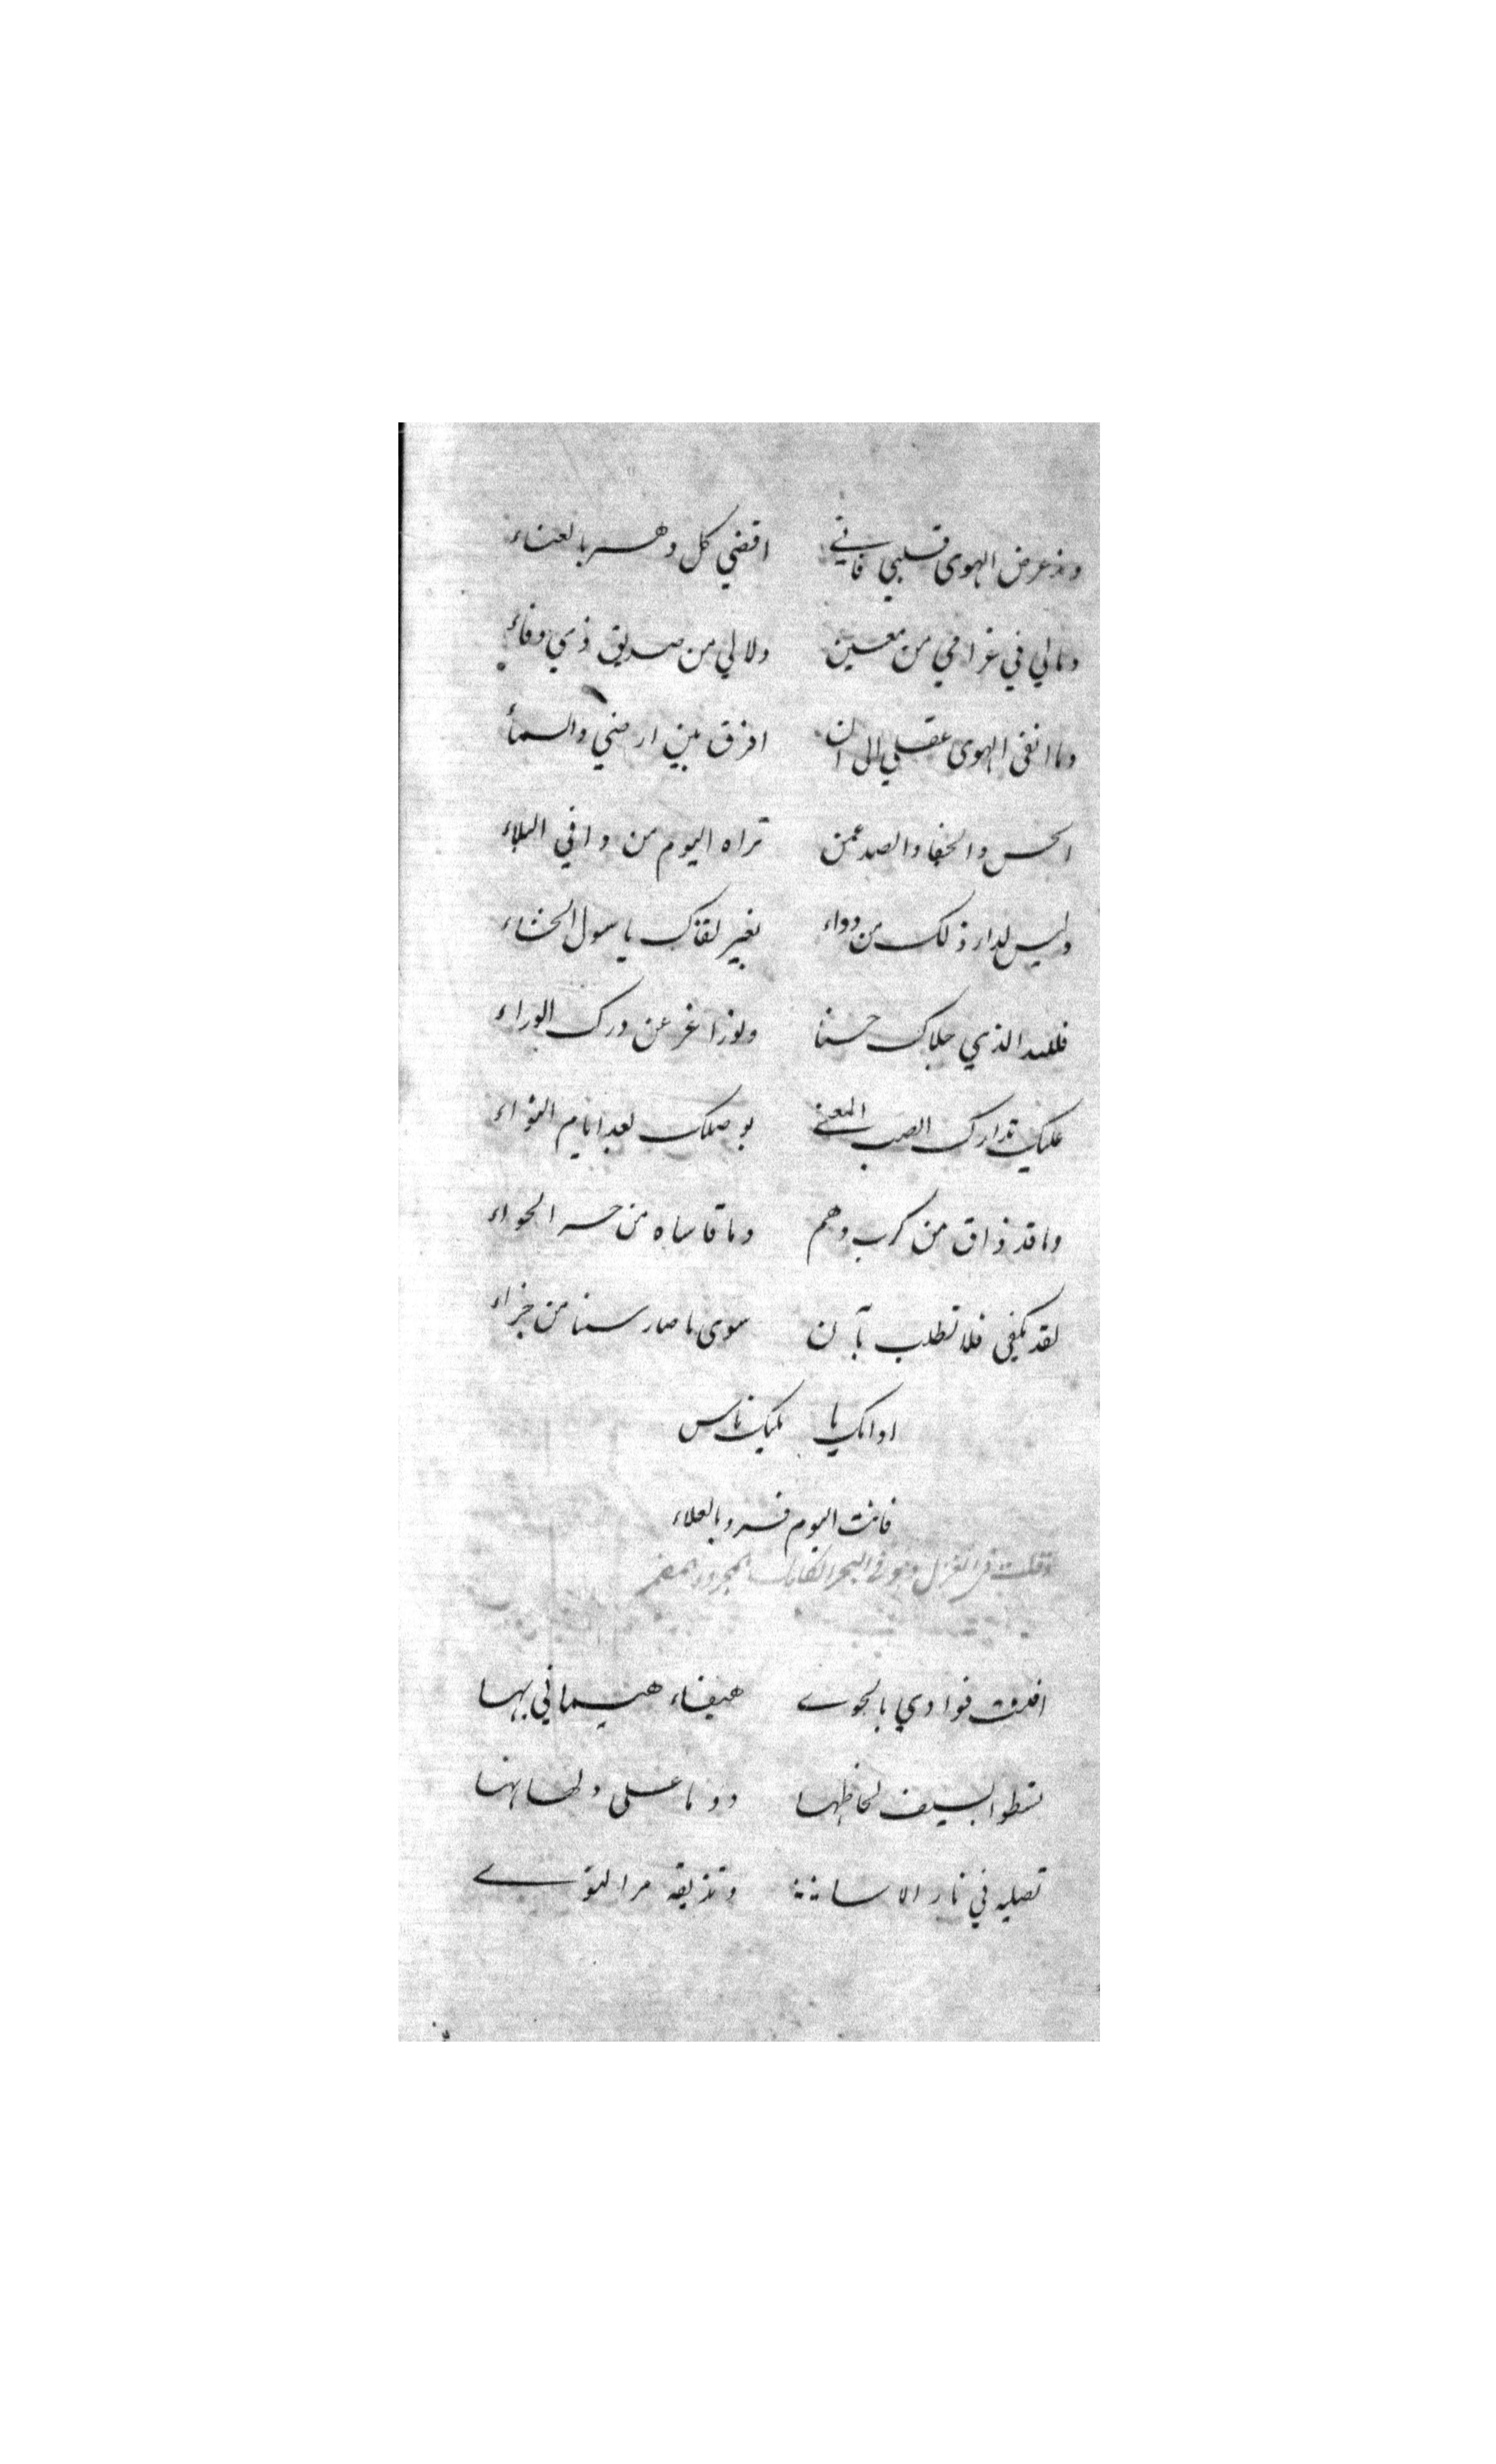 ومذ عرض الهوى قلبي فاني اقضي كل دهر بالعناء
ومالي في غرامي من معين ولا لي من صديق ذي وفاء
وما انفى الهوى عقلي الى ان افرق بين ارضي والسماء
الحس والخفا والصد عمن تراه اليوم من وافي البلاء
وليس لداء ذلك من دواء بغير لقاك يا سول الحشاء
فلله الذي حلاك حسنا ونورا غر عن درك الوراء
عليك تدارك الصب المعنى بوصلك بعد ايام النواء
وما قد ذاق من كرب وهم وما قاساه من حر الجواء
لقد يكفي فلا تطلب بآن سوى ما صار سنا من جزاء
يا
فانت اليوم فرد بالعلاء
وقلت في الغزل وهو في البحر الكامل
فوادي بالجوى هيفاء هيماني بها
تسطو بسيف لحاظها دوما على ولهانها
تصليه في نار الاسا وتذيقه مر النوى